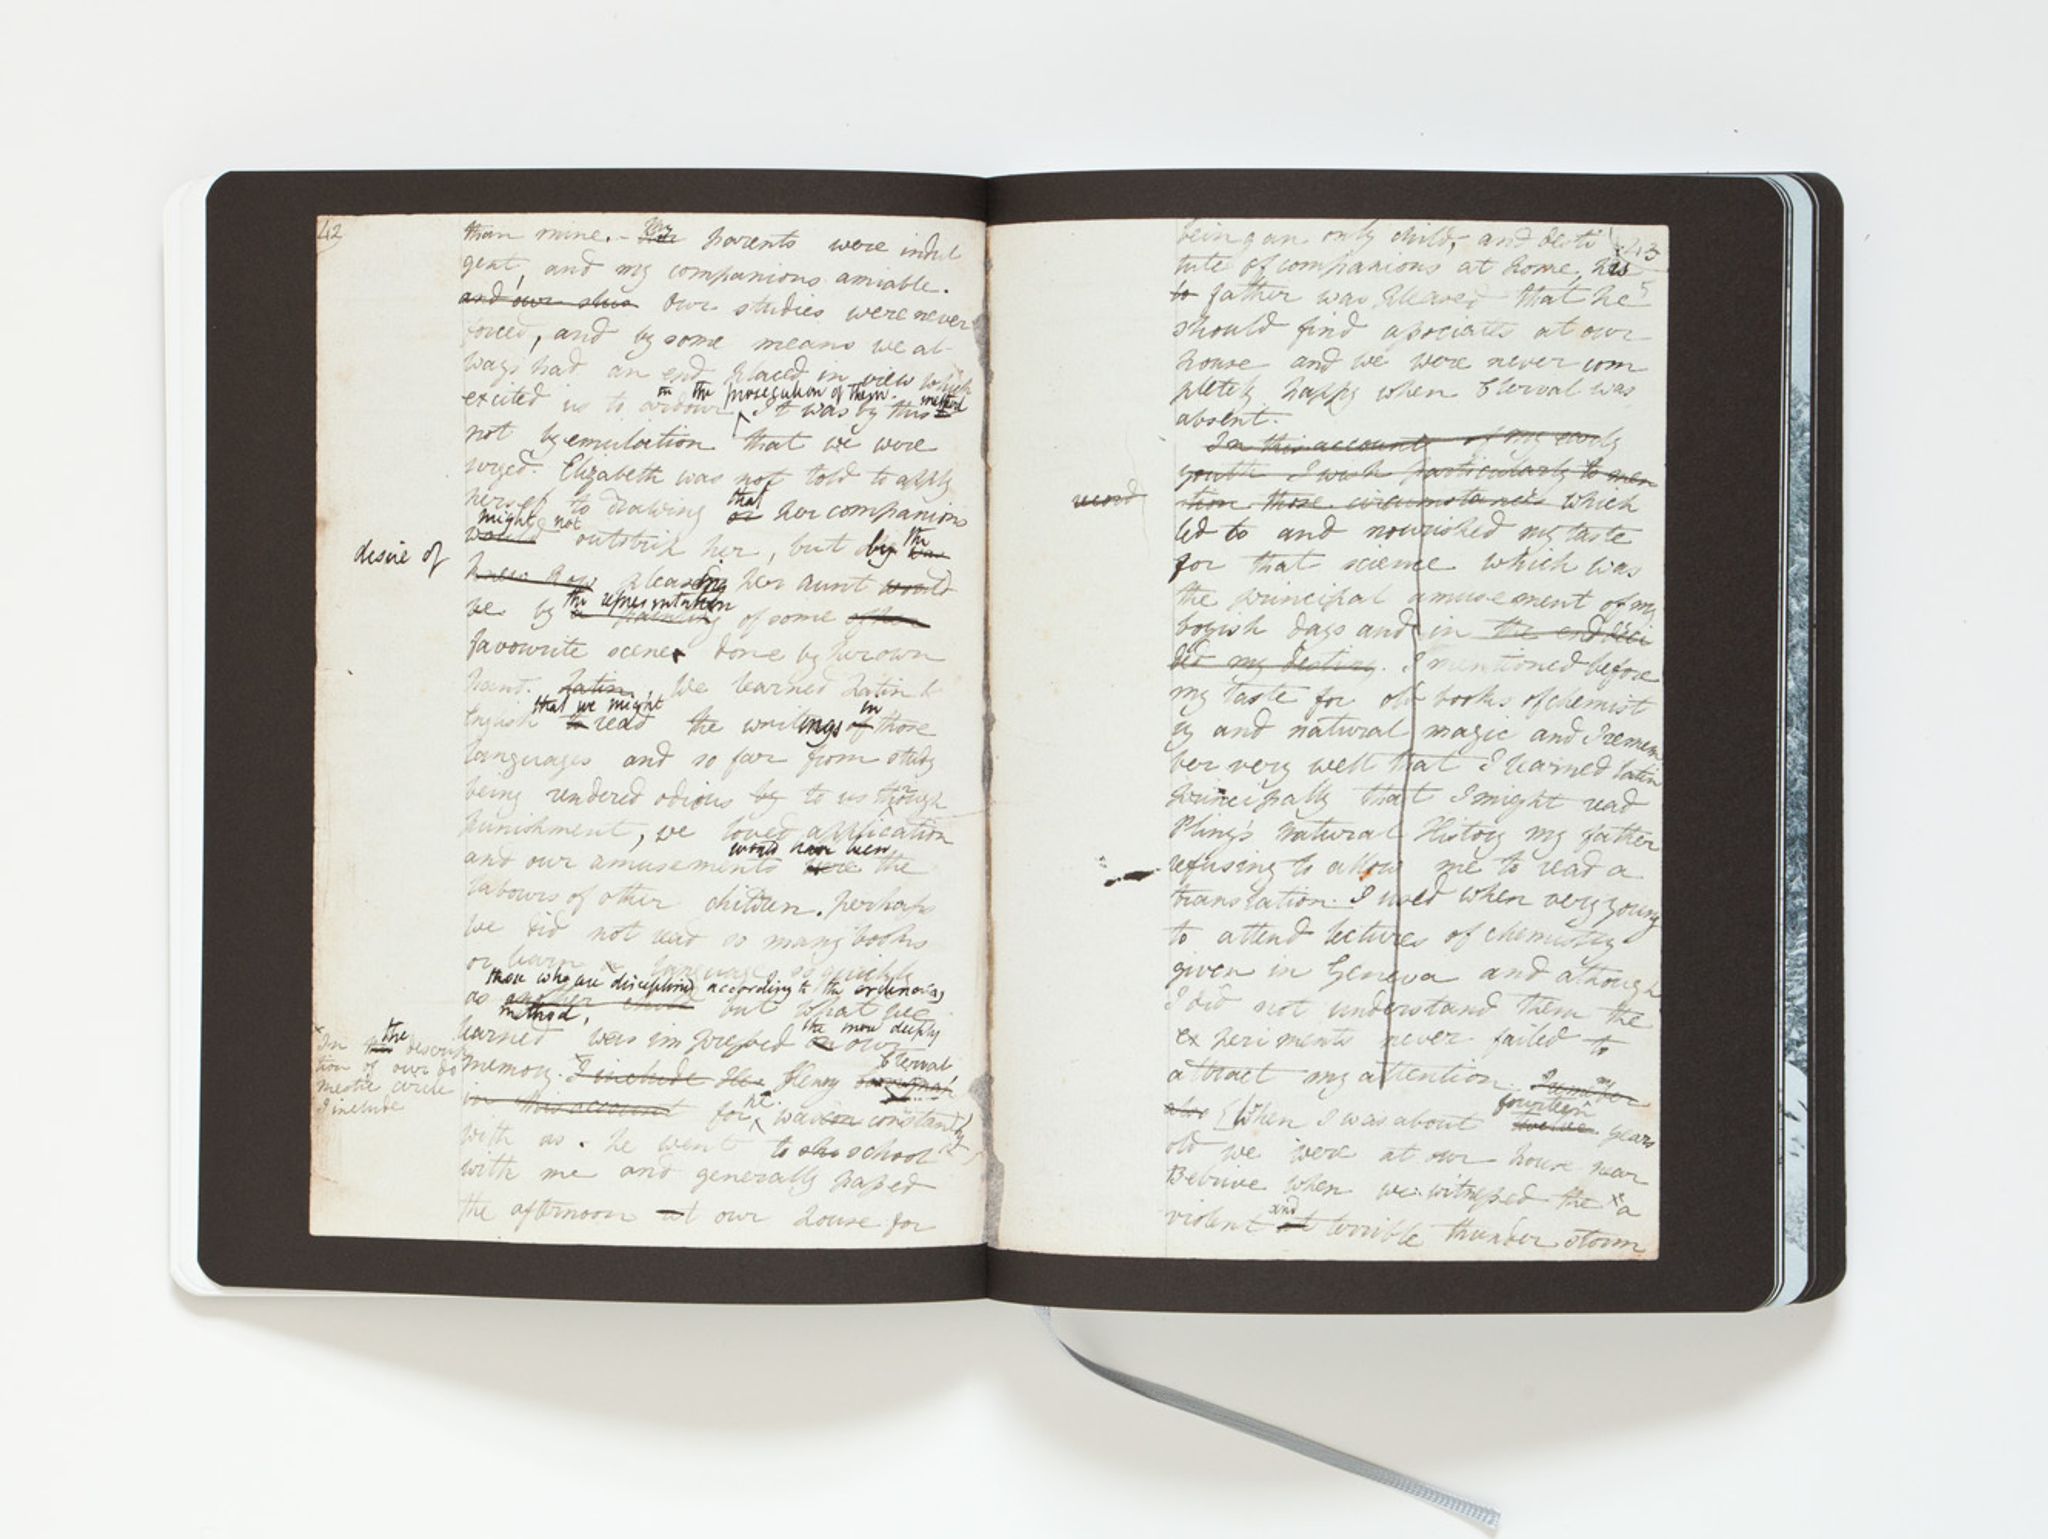 42
than mine. - My
Her parents were indul
gent, and my companions amiable.
and our stu Our studies were never
forced, and by some means we al-
ways had an end placed in view which
on the prosecution of them. method
excited us to ardour. It was by this
not by emulation that we were
urged. Elizabeth was not told to apply
herself to drawing that or her companions
might not
would outstrip her, but by the
desire of
knew how pleasing her aunt would
the representation
be by a painting of some of her
favourite scenes done by her own
hand. Latin We learned Latin &
that we might in
English to read the writings of those
languages and so far from study
being rendered odious by to us through
punishment, we loved application
would have been
and our amusements were the
labours of other children. Perhaps
we did not read so many books
or learn language so quickly
those who are disciplined according to the ordinary
as another child but what we
method,
learned was impressed the more deeply
on our
memory. I include He Henry Clerval
in this account for he was constantly
with us. he went to school
with me and generally passed
the afternoon at our house for
x In the descrip
tion of our do
mestic circle
I include
43
being an only child, and desti
tute of companions at home, his
to father was pleased that he
should find associates at our
house and we were never com
pletely happy when Clerval was
absent.
In this account of my early
youth I wish particularly to men
tion those circumstances which
word
led to and nourished my taste
for that science which was
the principal amusement of my
boyish days and in the end deci
ded my destiny. I mentioned before
my taste for old books of chemist
ry and natural magic and I remem
ber very well that I learned Latin
principally that I might read
Pliny's Natural History my father
refusing to allow me to read a
translation. I used when very young
to attend lectures of chemistry
given in Geneva and athough
I did not understand them the
experiments never failed to
attract my attention.
also When I was about fourteen
twelve years
old we were at our house near
Belrive when we witnessed the x a
and
violent terrible thunder storm